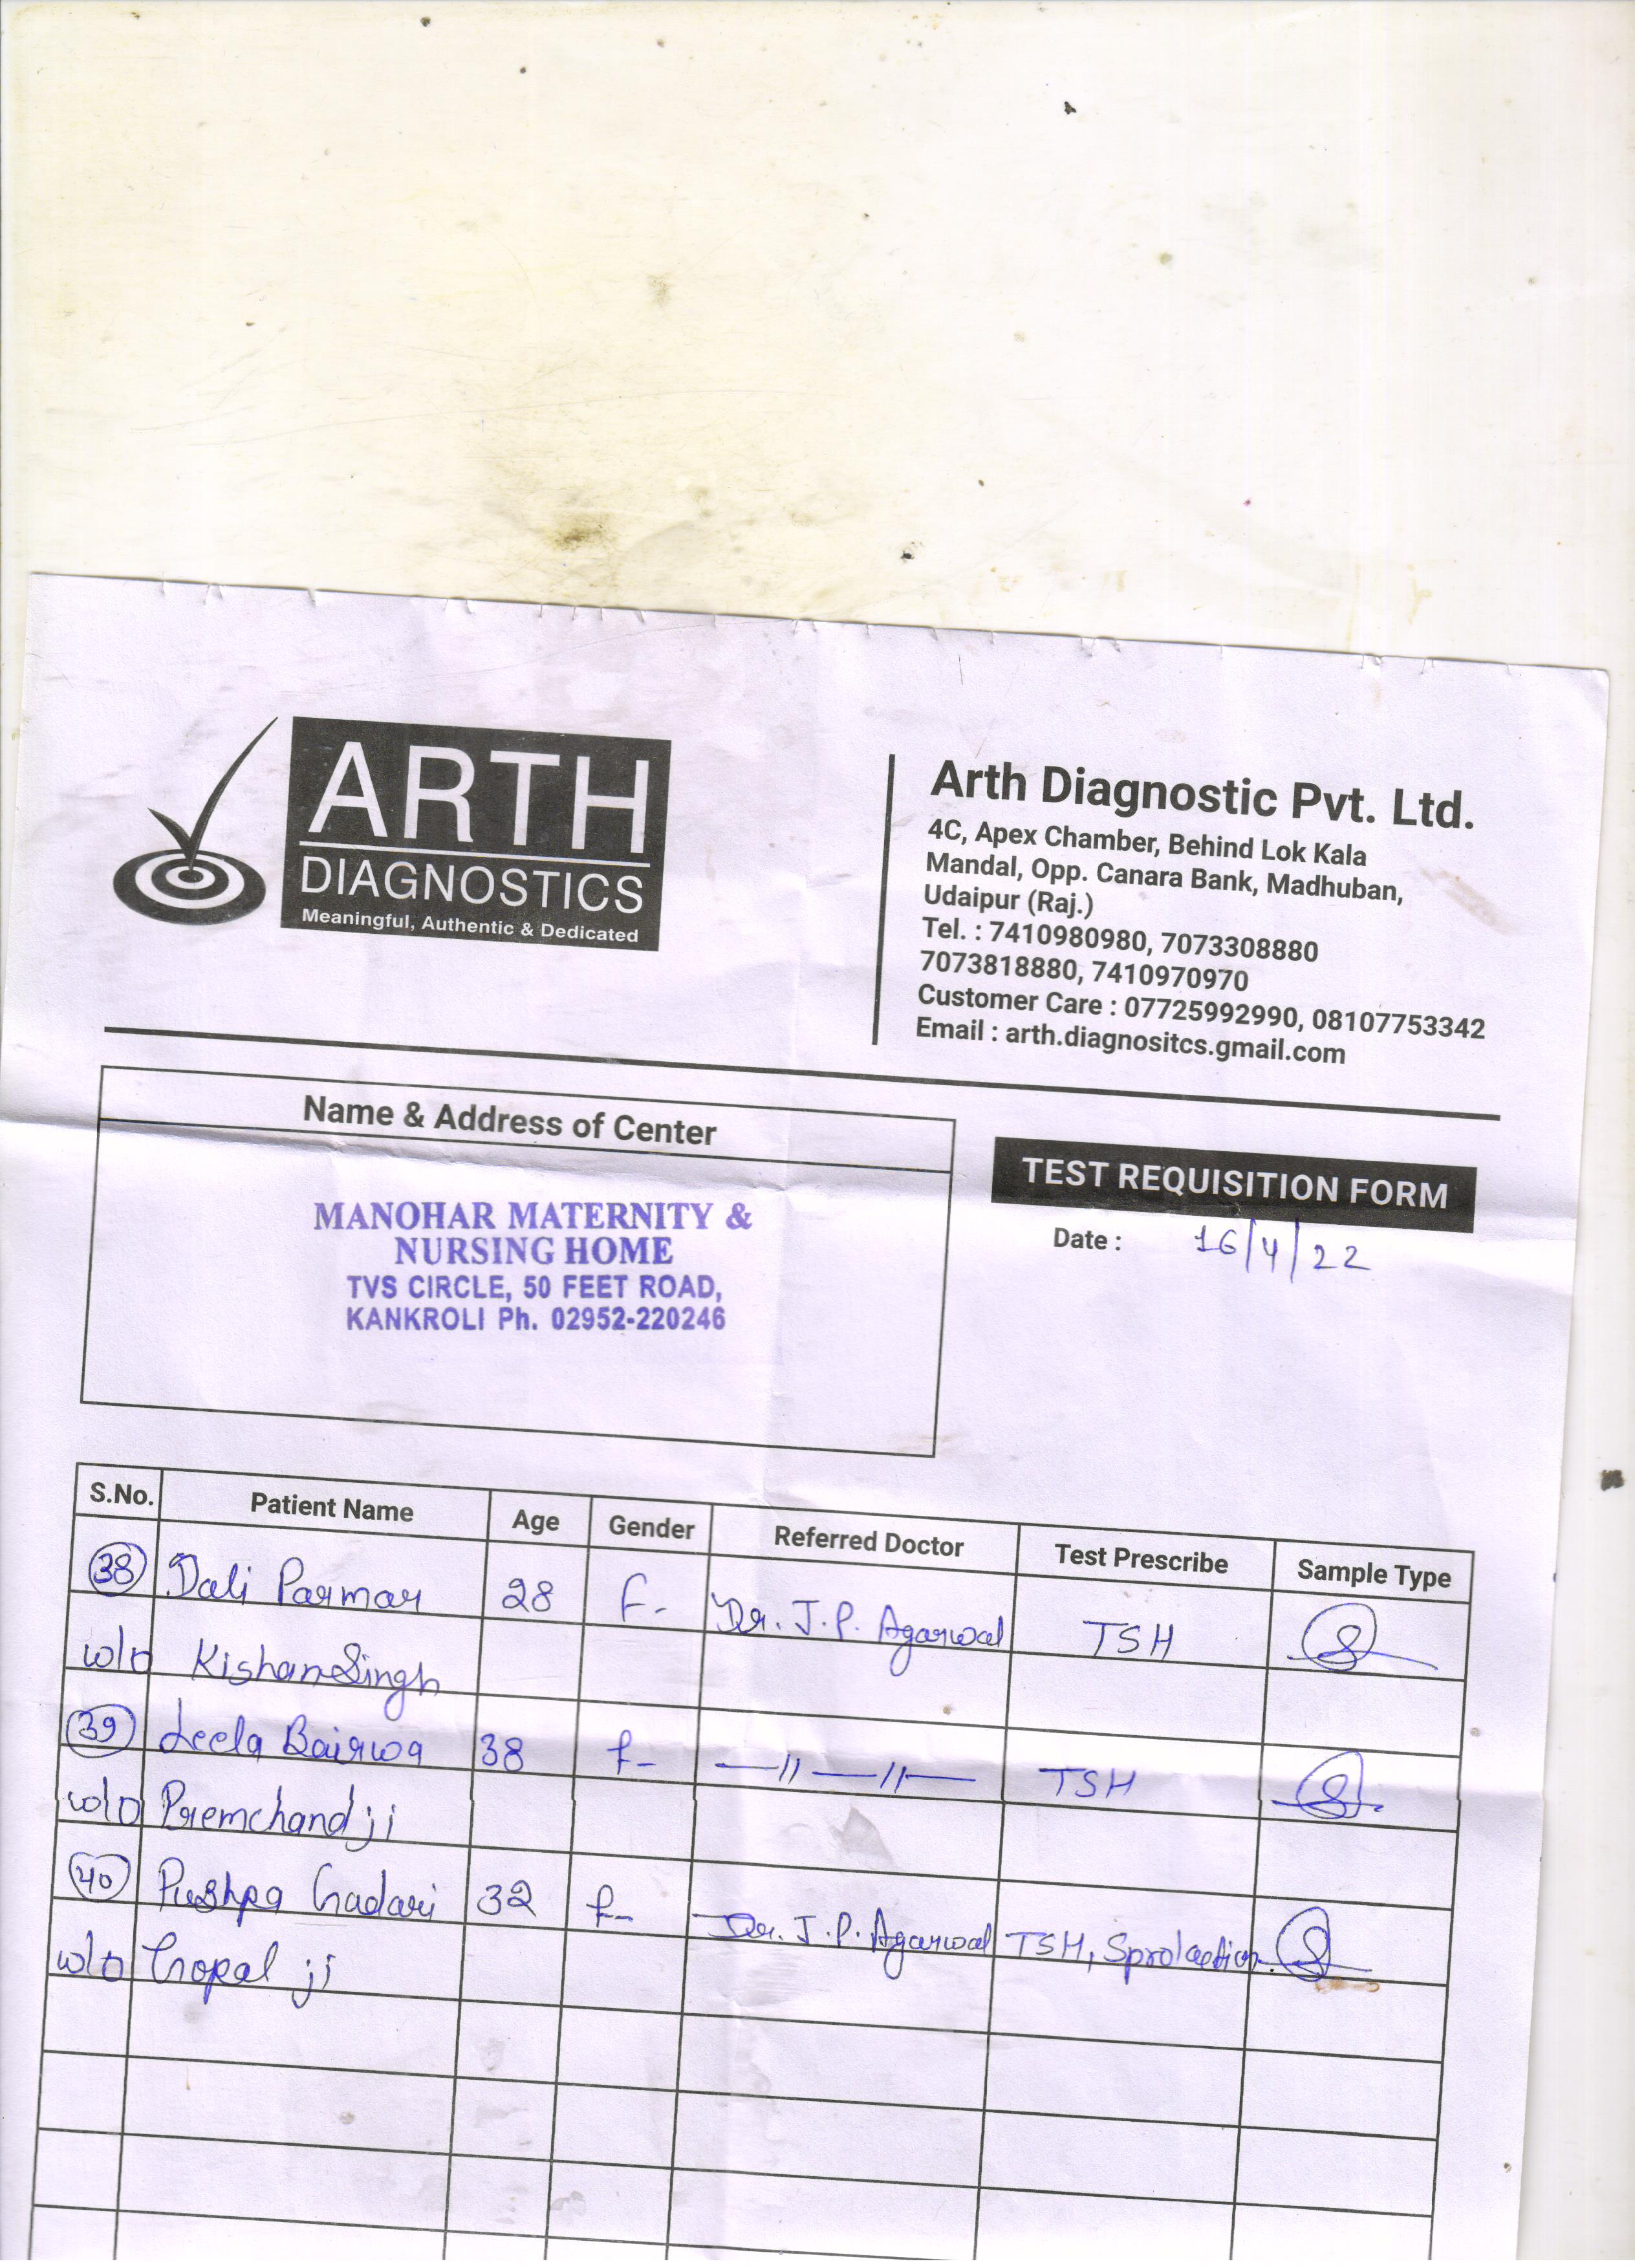 ARTH
DIAGNOSTICS
Meaningful, Authentic & Dedicated
Arth Diagnostic Pvt. Ltd.
4C, Apex Chamber, Behind Lok Kala
Mandal, Opp. Canara Bank, Madhuban,
Udaipur (Raj.)
Tel. : 7410980980, 7073308880
7073818880, 7410970970
Customer Care : 07725992990, 08107753342
Email : arth.diagnositcs.gmail.com
Name & Address of Center
MANOHAR MATERNITY &
NURSING HOME
TVS CIRCLE, 50 FEET ROAD,
KANKROLI Ph. 02952-220246
TEST REQUISITION FORM
Date : 16/4/22
S.No. Patient Name Age Gender Referred Doctor Test Prescribe Sample Type
38 Dali Parmar 28 F- Dr. J. P. Agarwal TSH S
w/o Kishan Singh
39 Leela Bairwa 38 f- —//—//— TSH S
w/o Premchand ji
40 Pushpa Gadari 32 f- Dr. J. P. Agarwal TSH, Sprolaction. S
w/o Gopal ji